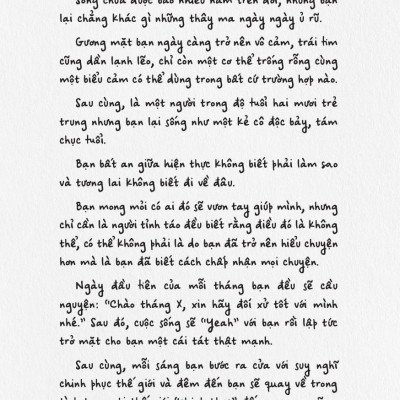 sống chưa được bao nhiêu năm trên đời, nhưng bạn
lại chẳng khác gì những thây ma ngày ngày ủ rũ.
Gương mặt bạn ngày càng trở nên vô cảm, trái tim
cũng dần lạnh lẽo, chỉ còn một cơ thể trống rỗng cùng
một biểu cảm có thể dùng trong bất cứ trường hợp nào.
Sau cùng, là một người trong độ tuổi hai mươi trẻ
trung nhưng bạn lại sống như một kẻ cô độc bảy, tám
chục tuổi.
Bạn bất an giữa hiện thực không biết phải làm sao
và tương lai không biết đi về đâu.
Bạn mong mỏi có ai đó sẽ vươn tay giúp mình, nhưng
chỉ cần là người tỉnh táo đều biết rằng điều đó là không
thể, có thể không phải là do bạn đã trở nên hiểu chuyện
hơn mà là bạn đã biết cách chấp nhận mọi chuyện.
Ngày đầu tiên của mỗi tháng bạn đều sẽ cầu
nguyện: "Chào tháng X, xin hãy đối xử tốt với mình
nhé." Sau đó, cuộc sống sẽ "Yeah" với bạn rồi lập tức
trở mặt cho bạn một cái tát thật mạnh.
Sau cùng, mỗi sáng bạn bước ra cửa với suy nghĩ
chinh phục thế giới và đêm đến bạn sẽ quay về trong